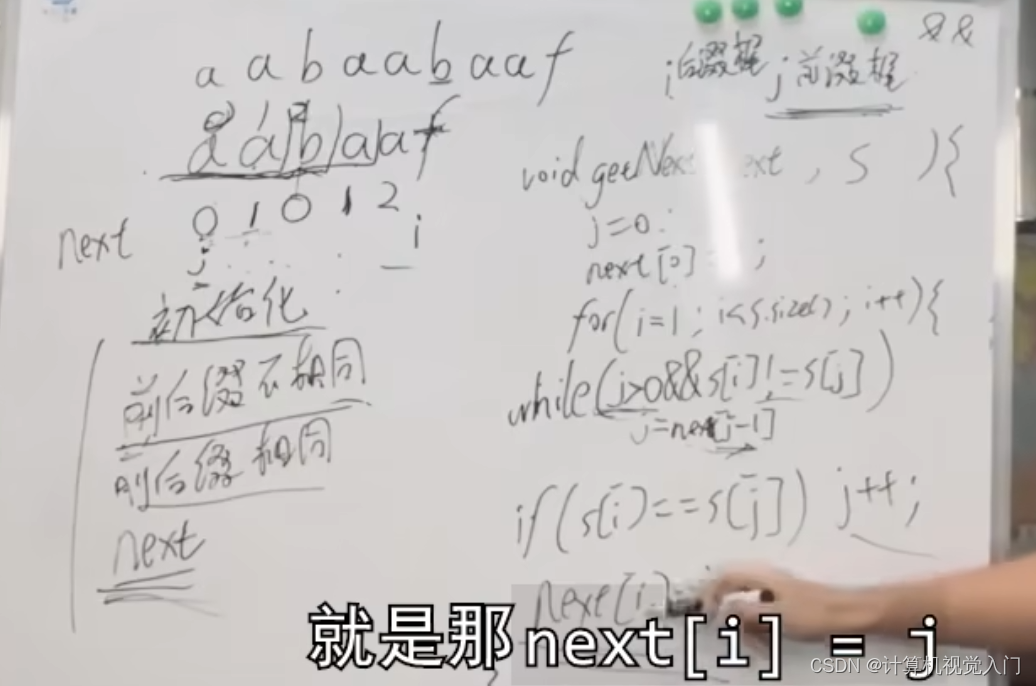 &&
aabaabaaf
i后缀尾 j前缀尾
aabaaf
void getNext next, s ){
0 1 0 1 2
next
j
i
j=0;
next[0] ;
初始化
for(i=1; i<s.size(); i++){
前后缀不相同
while(j>0&&s[i]!=s[j])
j=next[j-1]
前后缀相同
if(s[i]==s[j]) j++;
next
next[i]
就是那next[i] = j
CSDN @计算机视觉入门